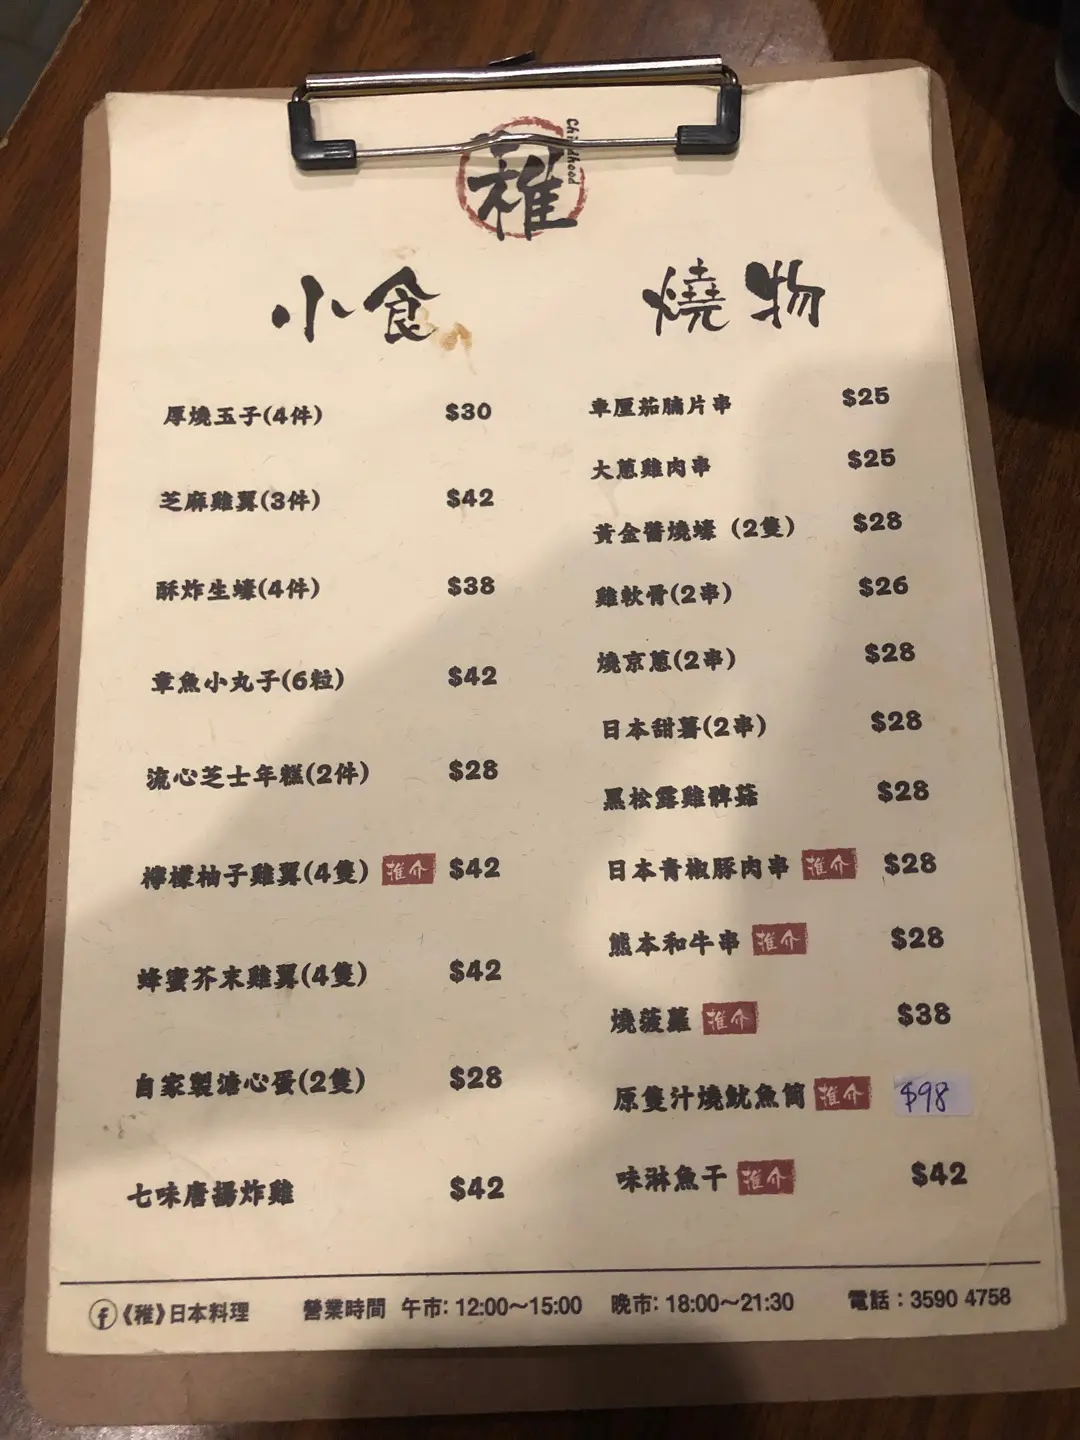 Childhood
稚
小食
厚燒玉子(4件) $30
芝麻雞翼(3件) $42
酥炸生蠔(4件) $38
章魚小丸子(6粒) $42
流心芝士年糕(2件) $28
檸檬柚子雞翼(4隻) 推介 $42
蜂蜜芥末雞翼(4隻) $42
自家製溏心蛋(2隻) $28
七味唐揚炸雞 $42
燒物
車厘茄腩片串 $25
大蔥雞肉串 $25
黃金醬燒蠔 (2隻) $28
雞軟骨(2串) $26
燒京蔥(2串) $28
日本甜薯(2串) $28
黑松露雞髀菇 $28
日本青椒豚肉串 推介 $28
熊本和牛串 推介 $28
燒菠蘿 推介 $38
原隻汁燒魷魚筒 推介 $98
味淋魚干 推介 $42
f 《稚》日本料理 營業時間 午市: 12:00～15:00 晚市: 18:00～21:30 電話：3590 4758